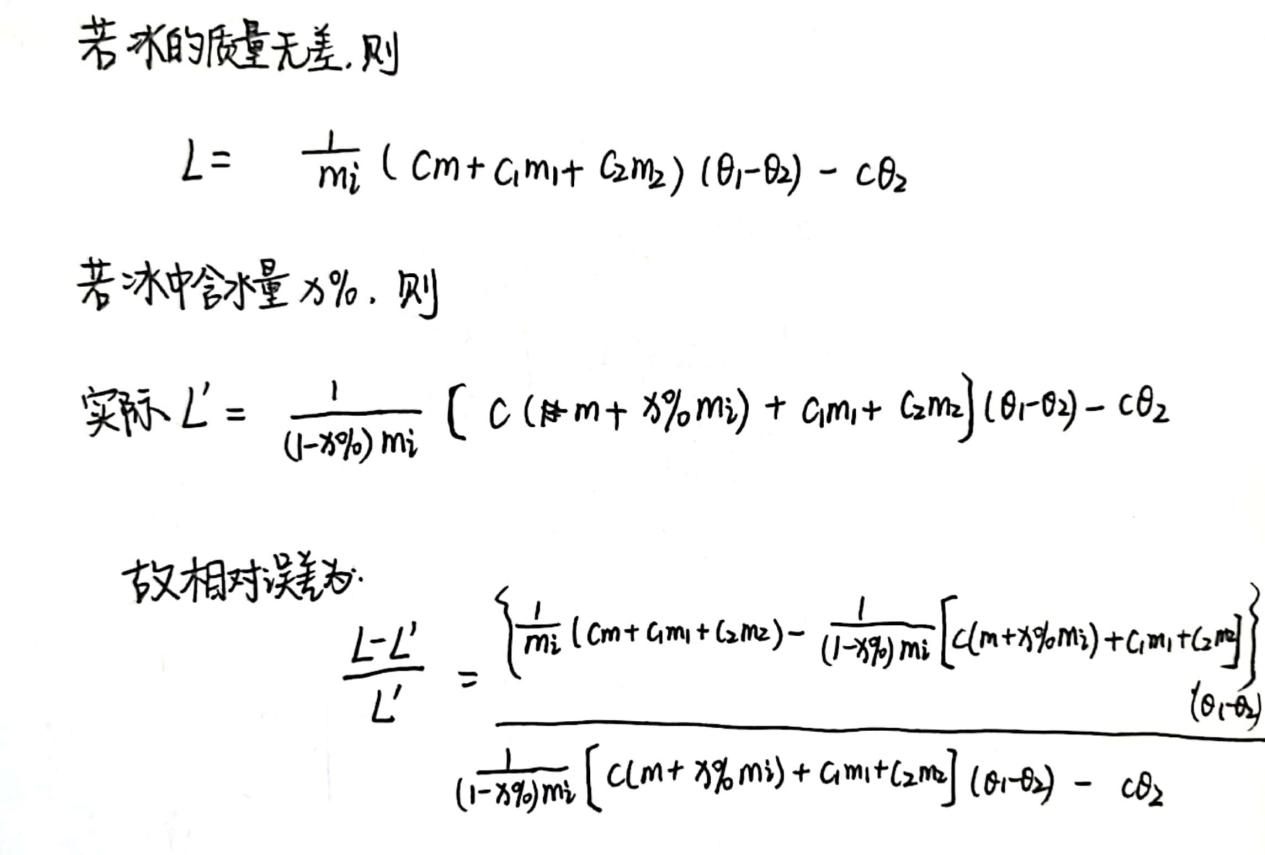 若冰的质量无差,则
L = \frac{1}{m_i} ( Cm + C_1m_1 + C_2m_2 ) (θ_1-θ_2) - cθ_2
若冰中含水量 x%, 则
实际 L' = \frac{1}{(1-x%) m_i} [ C ( m + x% m_i) + C_1m_1 + C_2m_2 ] (θ_1-θ_2) - cθ_2
故相对误差为:
\frac{L-L'}{L'} = \frac{\{ \frac{1}{m_i} (Cm + C_1m_1 + C_2m_2) - \frac{1}{(1-x%) m_i} [ C(m + x% m_i) + C_1m_1 + C_2m_2 ] \} (θ_1-θ_2)}{\frac{1}{(1-x%) m_i} [ C(m + x% m_i) + C_1m_1 + C_2m_2 ] (θ_1-θ_2) - cθ_2}